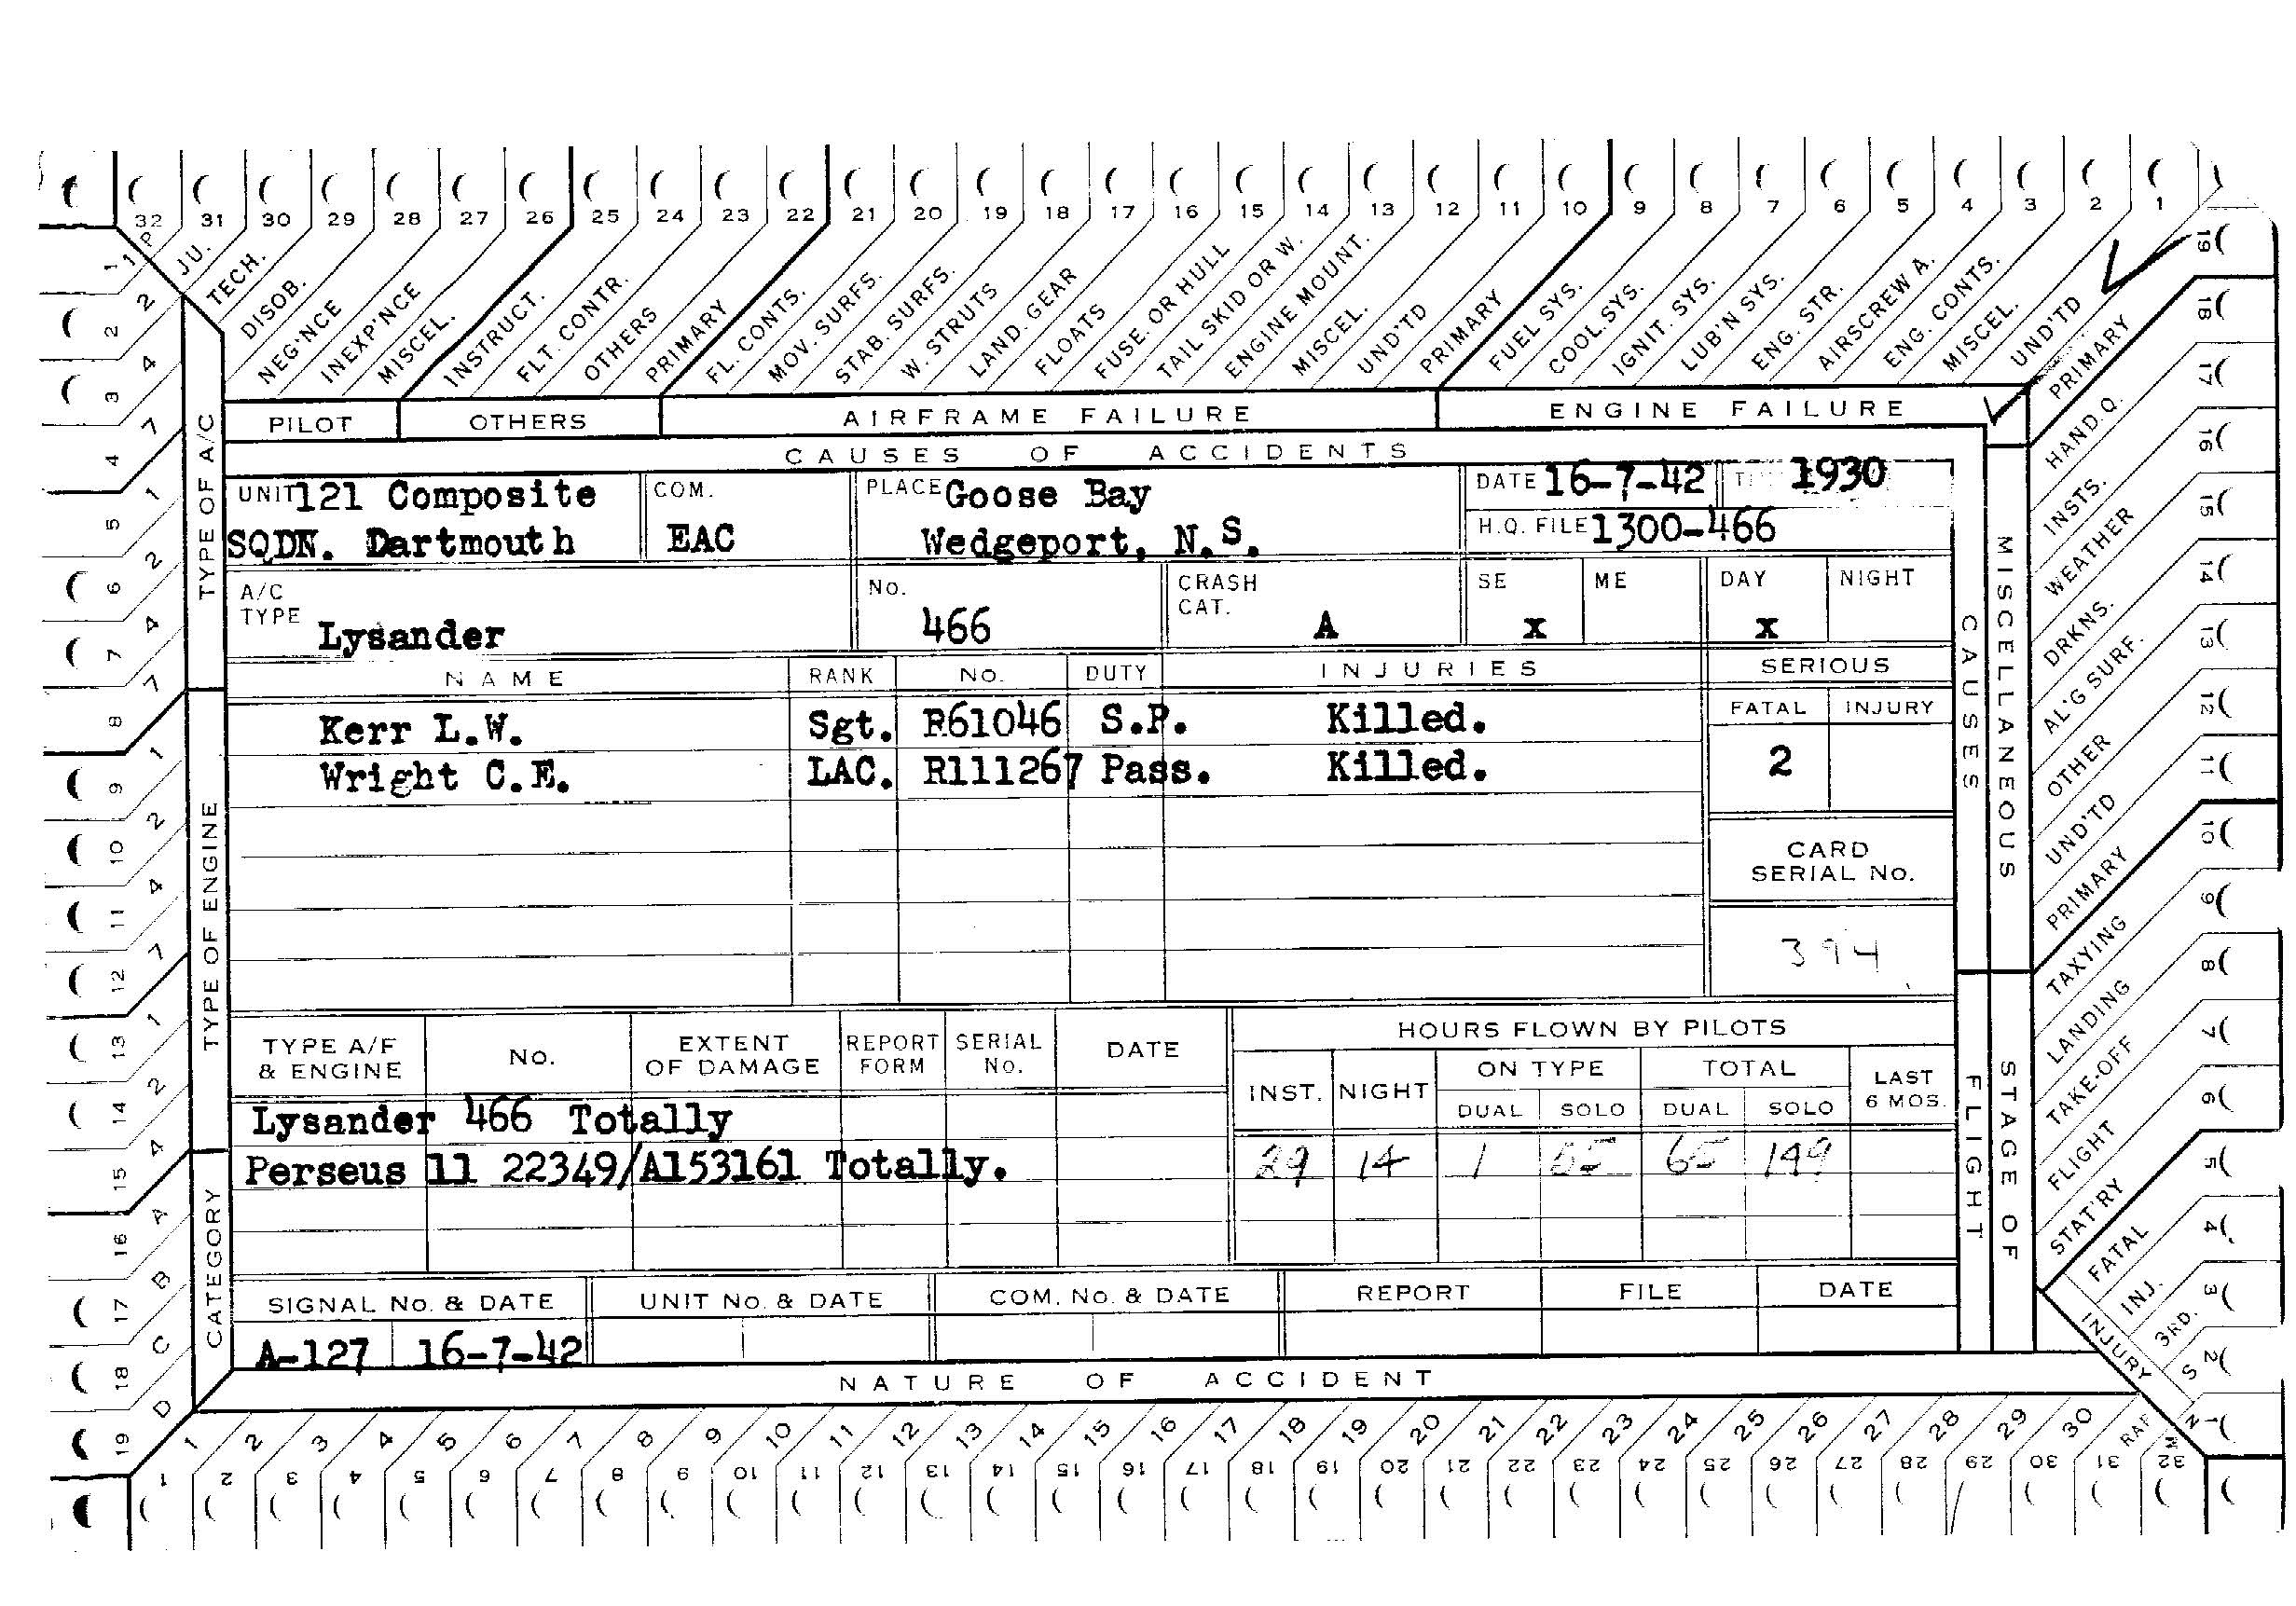 32 31 30 29 28 27 26 25 24 23 22 21 20 19 18 17 16 15 14 13 12 11 10 9 8 7 6 5 4 3 2 1
1P JU. TECH. DISOB. NEG'NCE INEXP'NCE MISCEL. INSTRUCT. FLT. CONTR. OTHERS PRIMARY FL. CONTS. MOV. SURFS. STAB. SURFS. W. STRUTS LAND. GEAR FLOATS FUSE. OR HULL TAIL SKID OR W. ENGINE MOUNT. MISCEL. UND'TD PRIMARY FUEL SYS. COOL. SYS. IGNIT. SYS. LUB'N SYS. ENG. STR. AIRSCREW A. ENG. CONTS. MISCEL. UND'TD PRIMARY
PILOT OTHERS AIRFRAME FAILURE ENGINE FAILURE
CAUSES OF ACCIDENTS
UNIT 121 Composite COM. PLACE Goose Bay DATE 16-7-42 1930
SQDN. Dartmouth EAC Wedgeport, N.S. H.Q. FILE 1300-466
A/C TYPE No. CRASH CAT. SE ME DAY NIGHT
Lysander 466 A x x
NAME RANK No. DUTY INJURIES SERIOUS
FATAL INJURY
Kerr L.W. Sgt. R61046 S.P. Killed.
Wright C.E. LAC. R111267 Pass. Killed. 2
CARD
SERIAL No.
394
TYPE A/F & ENGINE No. EXTENT OF DAMAGE REPORT FORM SERIAL No. DATE HOURS FLOWN BY PILOTS
INST. NIGHT ON TYPE TOTAL LAST 6 MOS.
DUAL SOLO DUAL SOLO
Lysander 466 Totally
Perseus 11 22349/A153161 Totally. 29 14 1 65 149
SIGNAL No. & DATE UNIT No. & DATE COM. No. & DATE REPORT FILE DATE
A-127 16-7-42
NATURE OF ACCIDENT
1 2 3 4 5 6 7 8 9 10 11 12 13 14 15 16 17 18 19 20 21 22 23 24 25 26 27 28 29 30 RAF
1 2 3 4 5 6 7 8 9 10 11 12 13 14 15 16 17 18 19 20 21 22 23 24 25 26 27 28 29 30 31 32
TYPE OF A/C
TYPE OF ENGINE
CATEGORY
1 2 4 7 1 2 4 7 1 2 4 7 1 2 4 A B C D
1 2 3 4 5 6 7 8 9 10 11 12 13 14 15 16 17 18 19
MISCELLANEOUS
CAUSES
STAGE OF
FLIGHT
HAND. Q. INSTS. WEATHER DRKNS. AL'G SURF. OTHER UND'TD PRIMARY TAXYING LANDING TAKE-OFF FLIGHT STAT'RY FATAL INJ. 3RD. S
INJURY
19 18 17 16 15 14 13 12 11 10 9 8 7 6 5 4 3 2 1